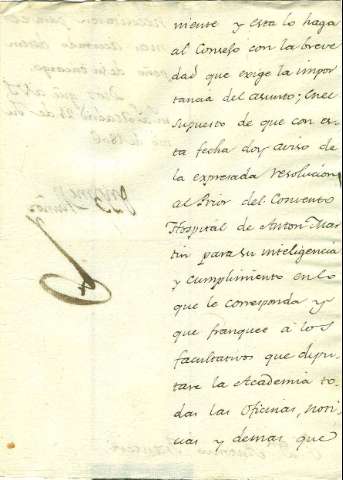 niente y esta lo haga
al Consejo con la breve
dad que exige la impor
tancia del asunto; En el
supuesto de que con es
ta fecha doy aviso de
la expresada resolucion
al Prior del Convento
Hospital de Anton Mar
tin para su inteligencia
y cumplimiento en lo
que le corresponda y
que franquee á los
facultativos que dipu
tare la Academia to
das las Oficinas, noti
cias y demas que